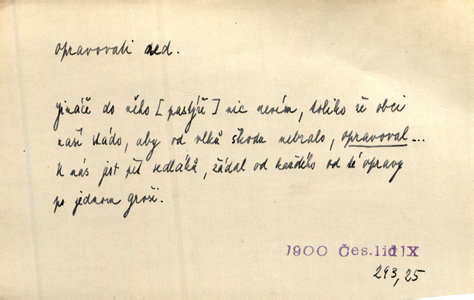 opravovati ded.
jináče do něho [pastýře] nic nevím, toliko že obci
naší stádo, aby od vlků škoda nebralo, opravoval...
k nás jest pět sedláků, žádal od každého od té opravy
po jednom groši.
1900 Čes. lid IX
293,25